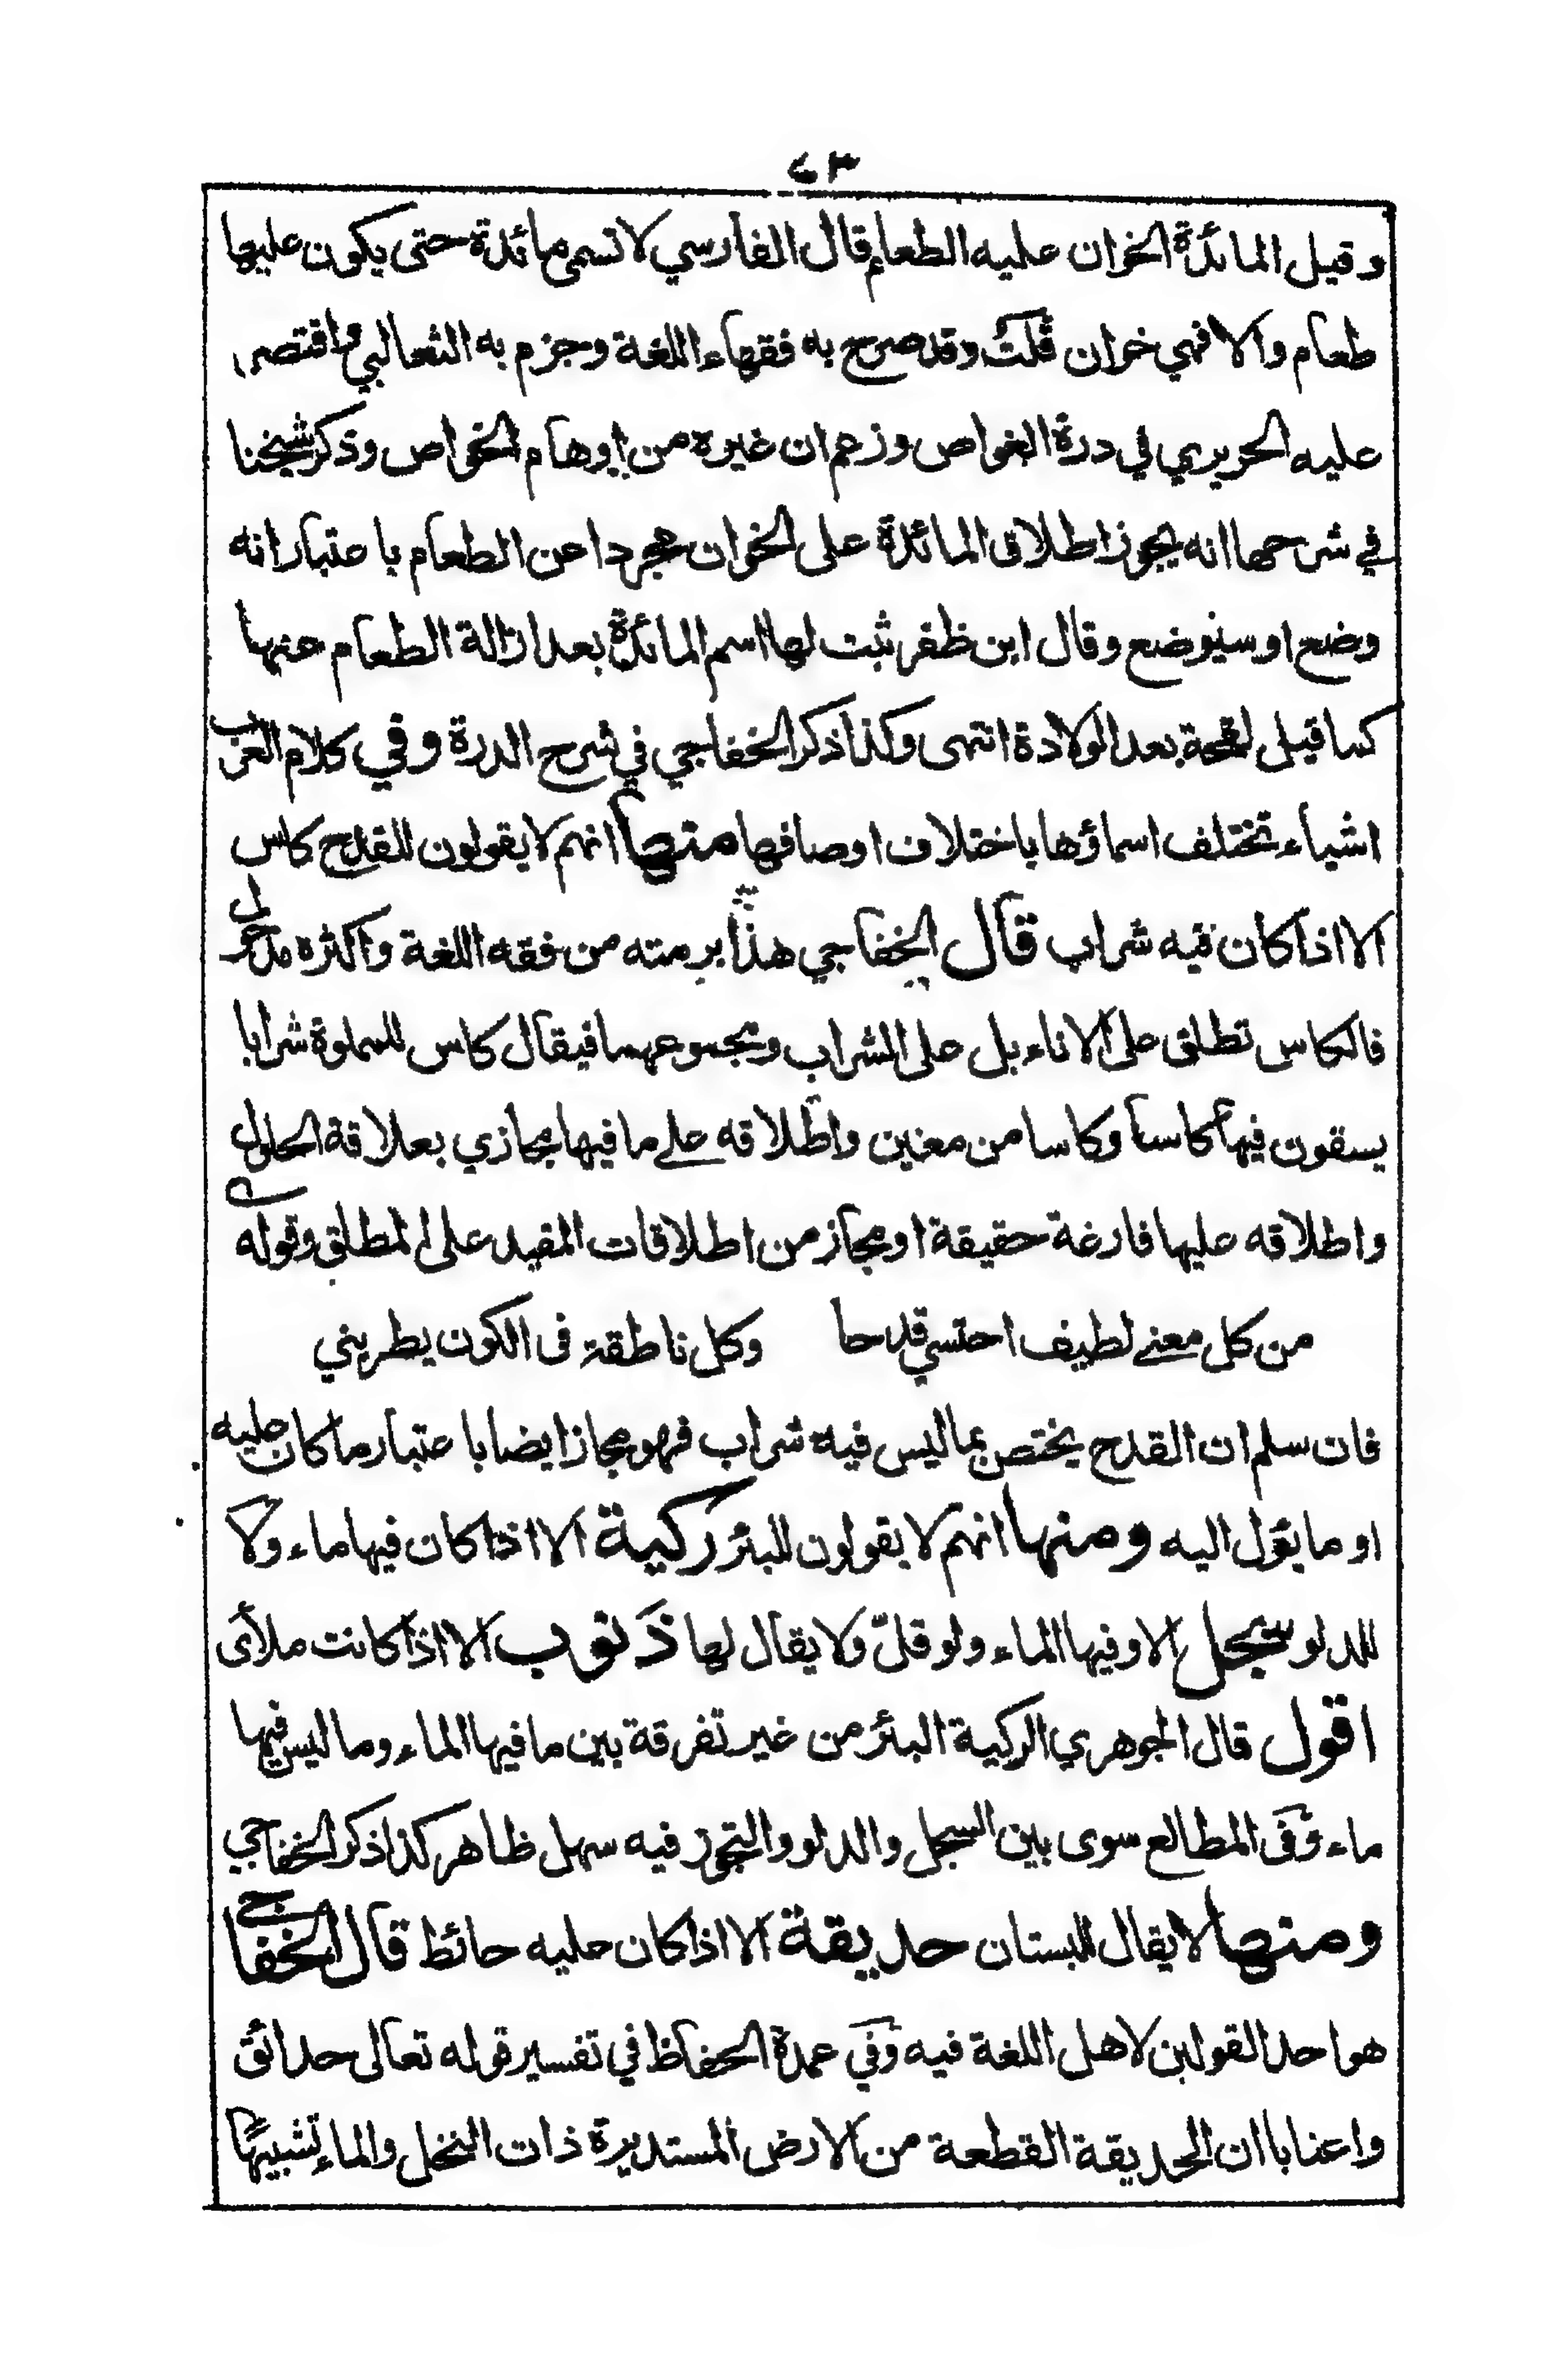 ٧٣
وقيل المائدة الخوان عليه الطعام قال الفارسي لا تسمى مائدة حتى يكون عليها
طعام والا فهي خوان قلت وقد صرح به فقهاء اللغة وجزم به الثعالبي واقتصر
عليه الحريري في درة الغواص وزعم ان غيره من اوهام الخواص وذكر شيخنا
في شرحها انه يجوز اطلاق المائدة على الخوان مجردا عن الطعام باعتبار انه
وضع او سيوضع وقال ابن ظفر ثبت لها اسم المائدة بعد ازالة الطعام عنها
كما قيل لقحة بعد الولادة انتهى وكذا ذكر الخفاجي في شرح الدرة وفي كلام العرب
اشياء تختلف اسماؤها باختلاف اوصافها منها انهم لا يقولون للقدح كاس
الا اذا كان فيه شراب قال الخفاجي هذا برمته من فقه اللغة واكثره مدخول
فالكاس تطلق على الاناء بل على الشراب ومجموعهما فيقال كاس للمملوة شرابا
يسقون فيها كاسا وكاسا من معين واطلاقه على ما فيها مجازي بعلاقة الحلول
واطلاقه عليها فارغة حقيقة او مجاز من اطلاقات المقيد على المطلق وقوله
من كل معنى لطيف احتسي قدحا وكل ناطقة فى الكون يطربني
فان سلم ان القدح يختص بما ليس فيه شراب فهو مجاز ايضا باعتبار ما كان عليه
او ما يؤل اليه ومنها انهم لا يقولون للبئر ركية الا اذا كان فيها ماء ولا
للدلو سجل الا وفيها الماء ولو قلّ ولا يقال لها ذَنوب الا اذا كانت ملأى
اقول قال الجوهري الركية البئر من غير تفرقة بين ما فيها الماء وما ليس فيها
ماء وفى المطالع سوى بين السجل والدلو والتجوز فيه سهل ظاهر كذا ذكر الخفاجي
ومنها لا يقال للبستان حديقة الا اذا كان عليه حائط قال الخفاجي
هو احد القولين لاهل اللغة فيه وفي عمدة الحفاظ في تفسير قوله تعالى حدائق
واعنابا ان الحديقة القطعة من الارض المستديرة ذات النخل والماء تشبيهًا